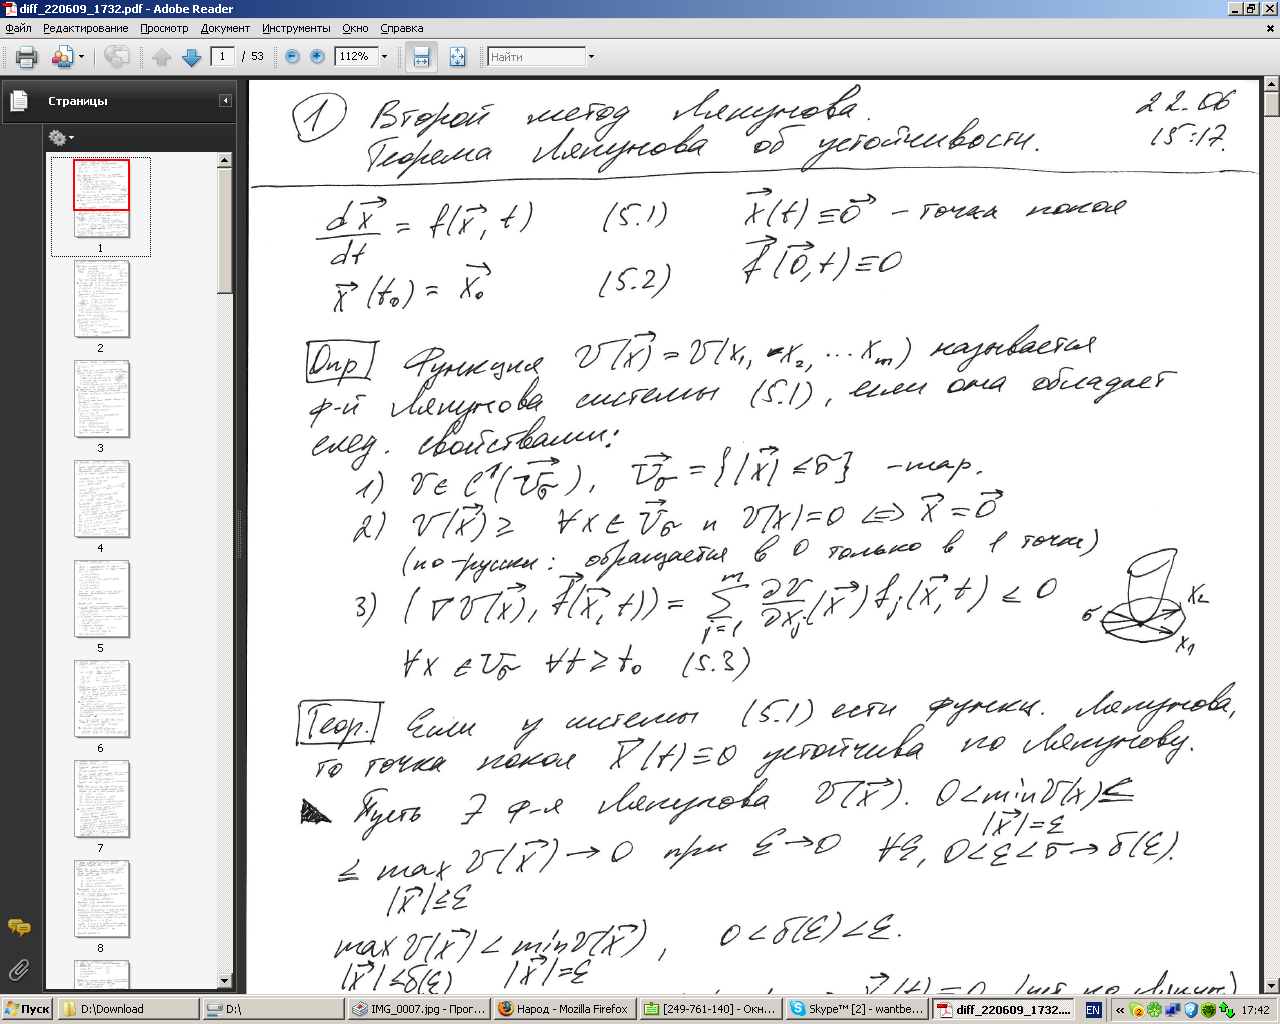 diff_220609_1732.pdf - Adobe Reader
Файл Редактирование Просмотр Документ Инструменты Окно Справка
1 / 53 112% Найти
Страницы
1
2
3
4
5
6
7
8
① Второй метод Ляпунова. 22.06
Теорема Ляпунова об устойчивости. 15:17.
dx⃗/dt = f(x⃗, t) (5.1) x⃗(t) ≡ 0⃗ - точка покоя
x⃗(t₀) = x⃗₀ (5.2) f⃗(0⃗, t) ≡ 0
Опр Функция v(x⃗) = v(x₁, x₂, ... xₘ) называется
ф-й Ляпунова системы (5.1), если она обладает
след. свойствами:
1) v ∈ C¹(v⃗σ), v⃗σ = {|x⃗| ≤ σ} - шар.
2) v(x⃗) ≥ ∀x ∈ v⃗σ и v(x) = 0 ⇔ x⃗ = 0⃗
(по-руски: обращается в 0 только в 1 точке)
3) (∇v(x⃗), f⃗(x⃗, t)) = Σ_{j=1}^{m} ∂v/∂xⱼ (x⃗) fⱼ(x⃗, t) ≤ 0
σ x₂ x₁
∀x ∈ vσ ∀t ≥ t₀ (5.3)
Теор. Если у системы (5.1) есть функц. Ляпунова,
то точка покоя x⃗(t) ≡ 0 устойчива по Ляпунову.
Пусть ∃ ф-я Ляпунова v(x⃗). 0 < min v(x) ≤
|x⃗| = ε
≤ max v(x⃗) → 0 при ε → 0 ∀ε, 0 < ε < σ → δ(ε).
|x⃗| ≤ ε
max v(x⃗) < min v(x⃗), 0 < δ(ε) < ε.
|x⃗| ≤ δ(ε) |x⃗| = ε
Пуск D:\Download D:\ IMG_0007.jpg - Прог... Народ - Mozilla Firefox [249-761-140] - Окн... Skype™ [2] - wantbe... diff_220609_1732.... EN « 17:42